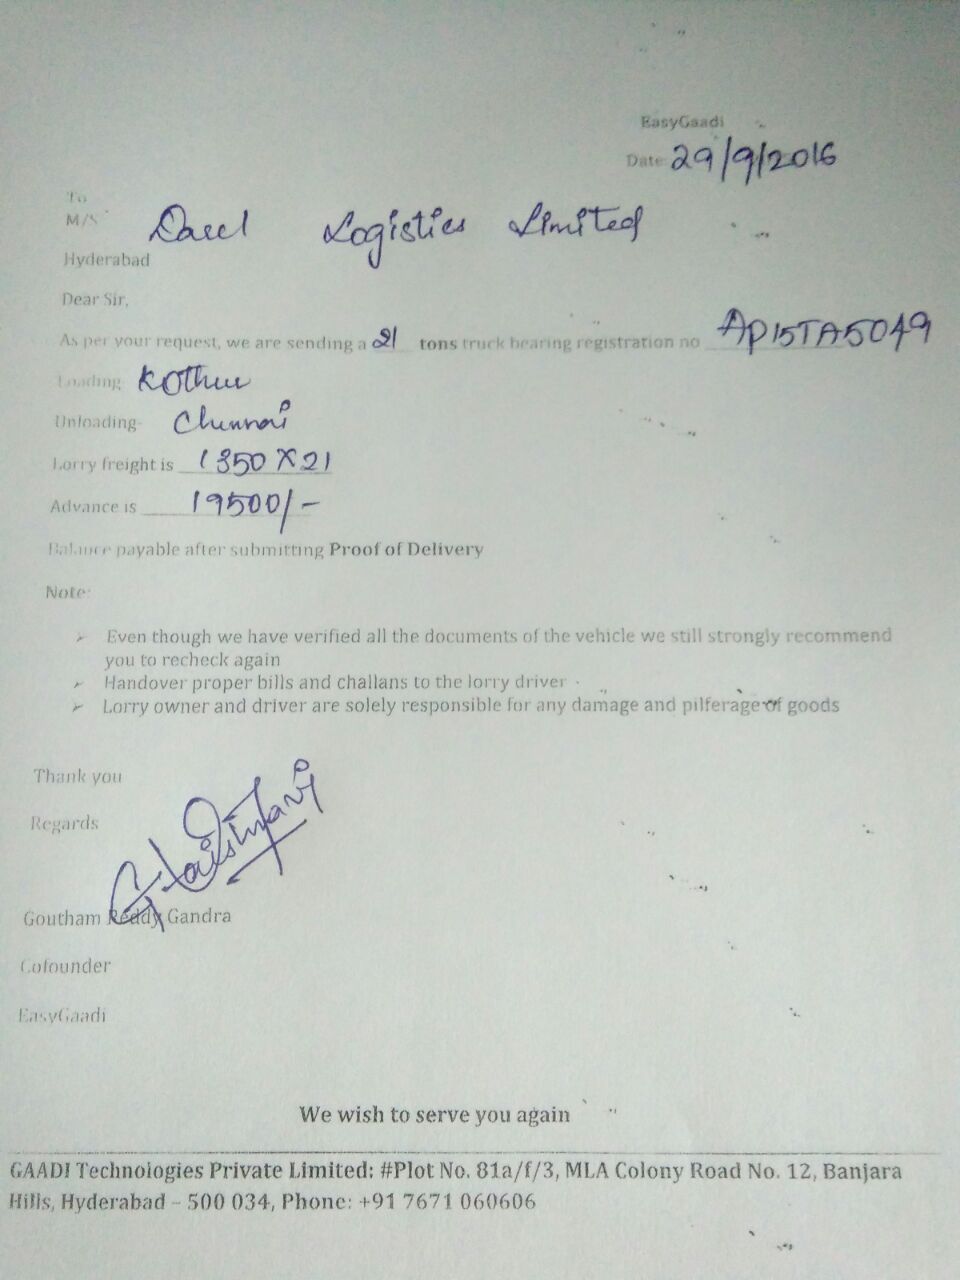 EasyGaadi
Date 29/9/2016
To
M/s Darcl Logistics Limited
Hyderabad
Dear Sir,
As per your request, we are sending a 21 tons truck bearing registration no AP15TA5049
Loading Kothur
Unloading- Chennai
Lorry freight is 1350 X 21
Advance is 19500/-
Balance payable after submitting Proof of Delivery
Note:
➢ Even though we have verified all the documents of the vehicle we still strongly recommend
you to recheck again
➢ Handover proper bills and challans to the lorry driver
➢ Lorry owner and driver are solely responsible for any damage and pilferage of goods
Thank you
Regards
Goutham Reddy Gandra
Cofounder
EasyGaadi
We wish to serve you again
GAADI Technologies Private Limited: #Plot No. 81a/f/3, MLA Colony Road No. 12, Banjara
Hills, Hyderabad – 500 034, Phone: +91 7671 060606